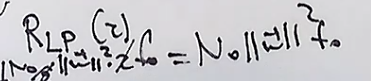 R_LP(z)
N_0 ||w||² · z f_0 = N_0 ||w||² f_0